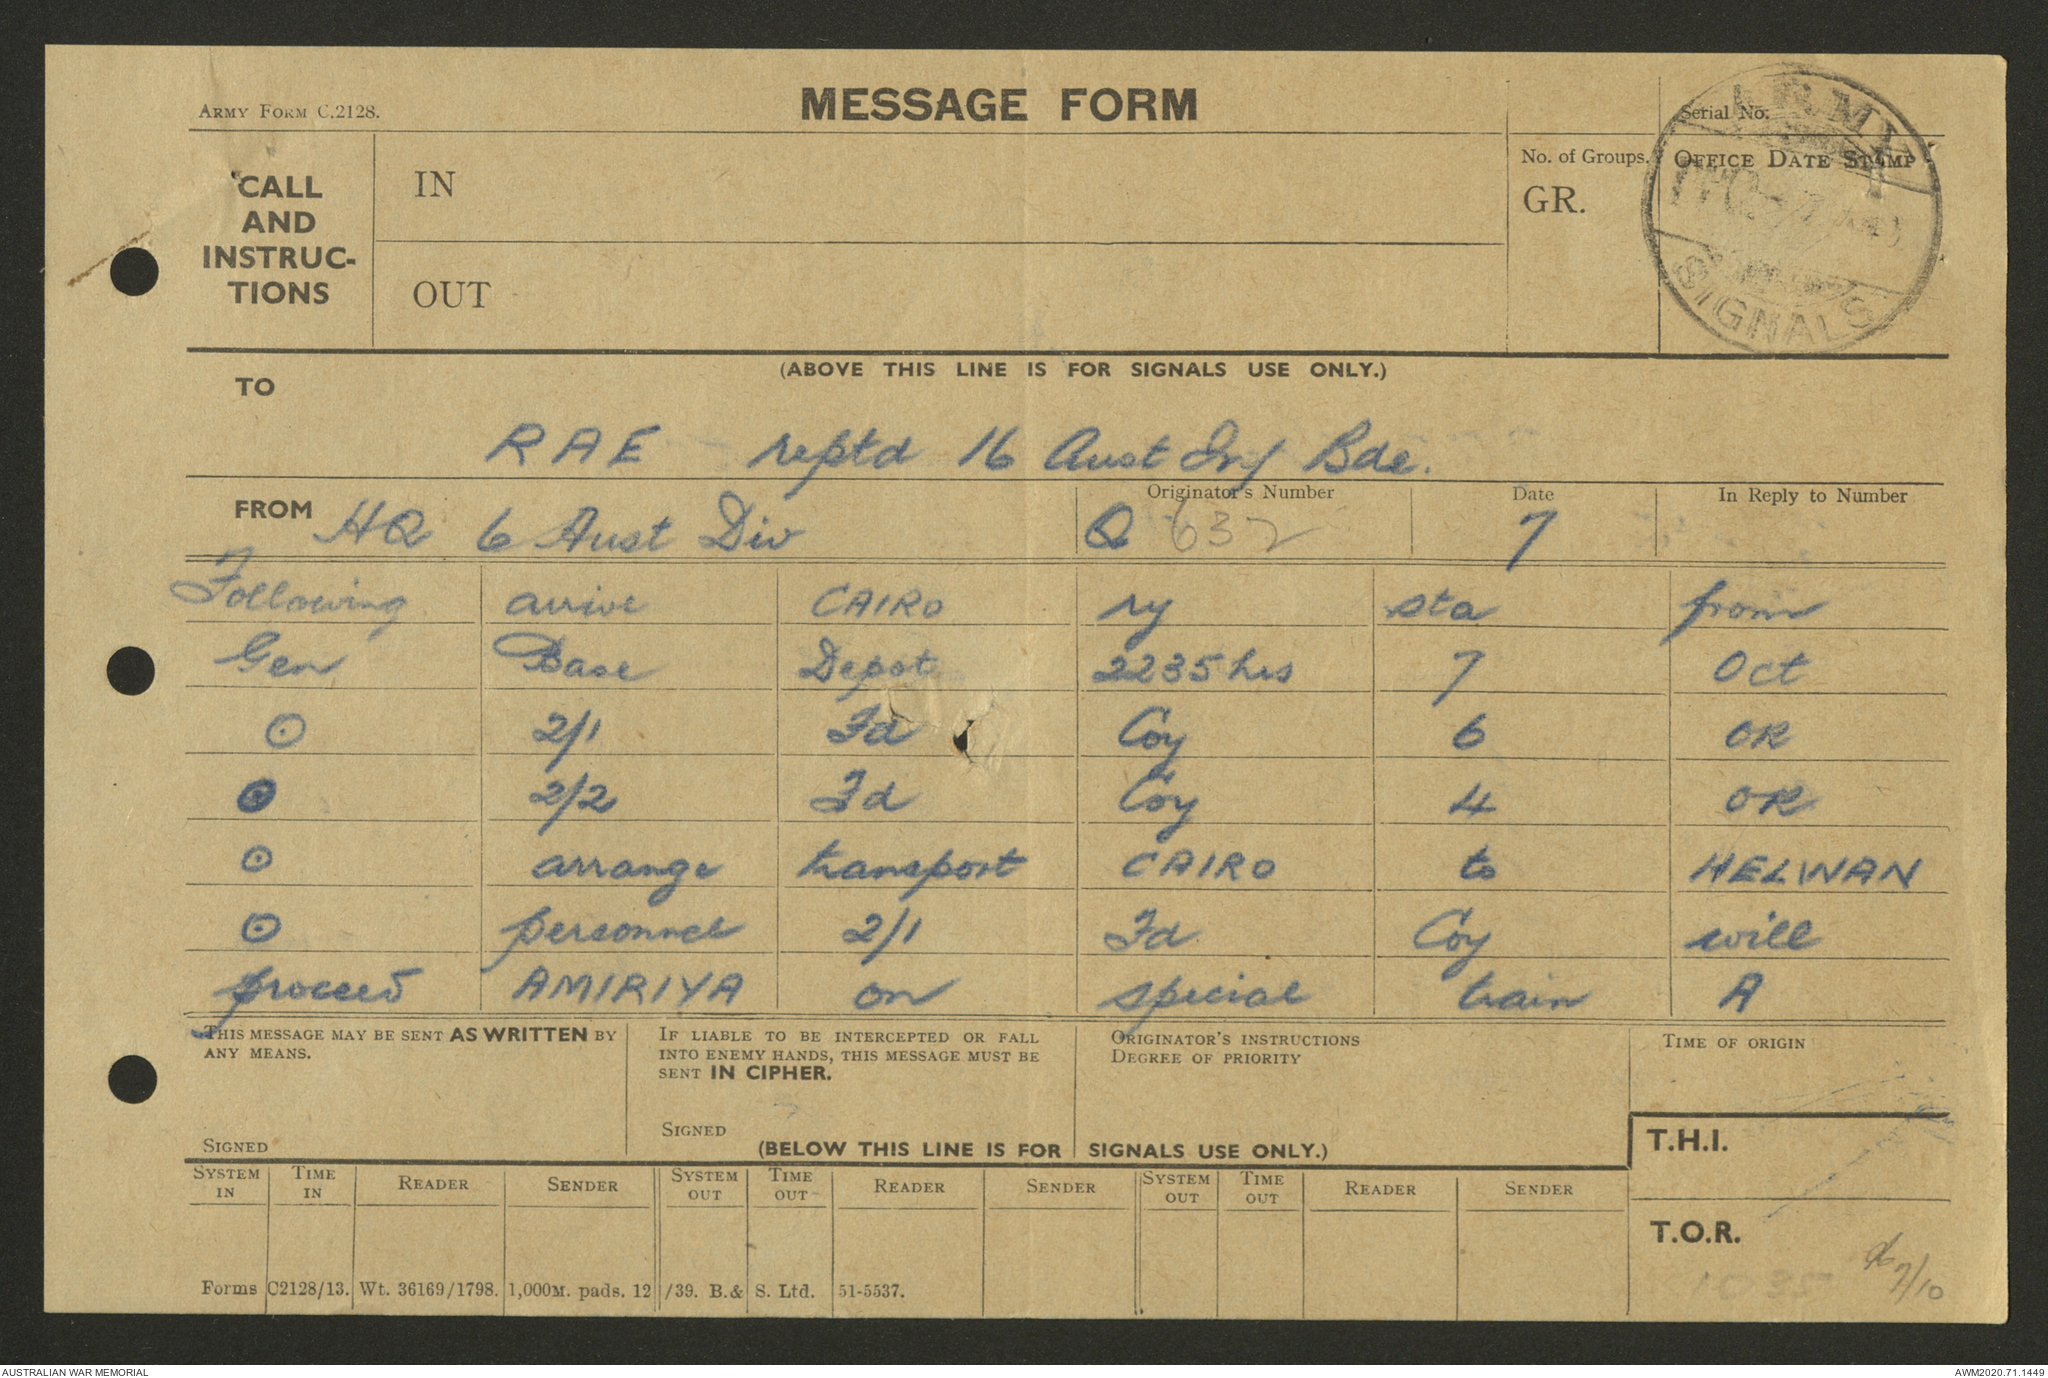 ARMY FORM C.2128.
MESSAGE FORM
Serial No.
CALL AND INSTRUC-TIONS
IN
OUT
No. of Groups.
GR.
OFFICE DATE STAMP
ARMY
SIGNALS
(ABOVE THIS LINE IS FOR SIGNALS USE ONLY.)
TO
RAE reptd 16 Aust Inf Bde.
FROM HQ 6 Aust Div
Originator's Number
Q 632
Date
7
In Reply to Number
Following arrive CAIRO ry sta from
Gen Base Depot 2235 hrs 7 Oct
⊙ 2/1 Fd Coy 6 OR
⊙ 2/2 Fd Coy 4 OR
⊙ arrange transport CAIRO to HELWAN
⊙ personnel 2/1 Fd Coy will
proceed AMIRIYA on special train A
THIS MESSAGE MAY BE SENT AS WRITTEN BY
ANY MEANS.
SIGNED
IF LIABLE TO BE INTERCEPTED OR FALL
INTO ENEMY HANDS, THIS MESSAGE MUST BE
SENT IN CIPHER.
SIGNED
ORIGINATOR'S INSTRUCTIONS
DEGREE OF PRIORITY
TIME OF ORIGIN
(BELOW THIS LINE IS FOR SIGNALS USE ONLY.)
T.H.I.
SYSTEM IN TIME IN READER SENDER SYSTEM OUT TIME OUT READER SENDER SYSTEM OUT TIME OUT READER SENDER
T.O.R.
1035
7/10
Forms C2128/13. Wt. 36169/1798. 1,000M. pads. 12/39. B.& S. Ltd. 51-5537.
AUSTRALIAN WAR MEMORIAL
AWM2020.71.1449